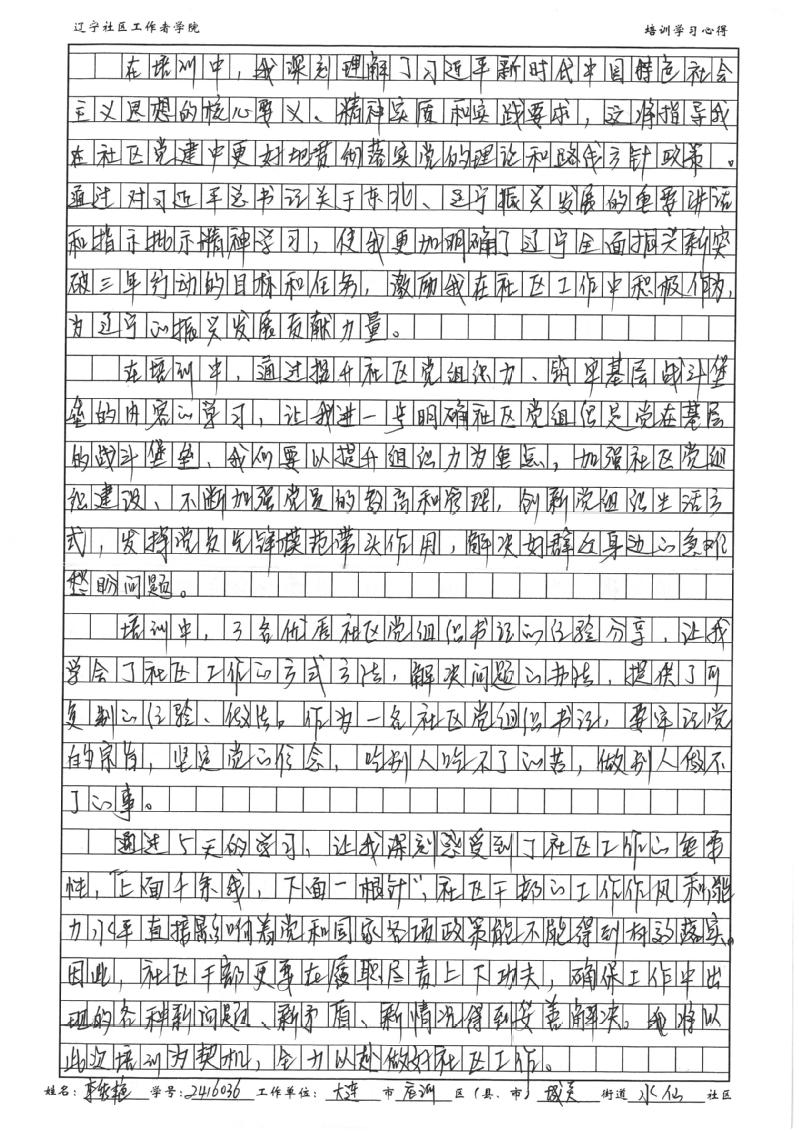 辽宁社区工作者学院 培训学习心得
在培训中，我深刻理解了习近平新时代中国特色社会
主义思想的核心要义、精神实质和实践要求，这将指导我
在社区党建中更好地贯彻落实党的理论和路线方针政策。
通过对习近平总书记关于东北、辽宁振兴发展的重要讲话
和指示批示精神学习，使我更加明确了辽宁全面振兴新突
破三年行动的目标和任务，激励我在社区工作中积极作为，
为辽宁的振兴发展贡献力量。
在培训中，通过提升社区党组织力、筑牢基层战斗堡
垒的内容的学习，让我进一步明确社区党组织是党在基层
的战斗堡垒、我们要以提升组织力为重点，加强社区党组
织建设、不断加强党员的教育和管理，创新党组织生活方
式，发挥党员先锋模范带头作用，解决好群众身边的急难
愁盼问题。
培训中，3名优秀社区党组织书记的经验分享，让我
学会了社区工作的方式方法，解决问题的办法，提供了可
复制的经验、做法。作为一名社区党组织书记，要牢记党
的宗旨，坚定党的信念，吃别人吃不了的苦，做别人做不
了的事。
通过5天的学习，让我深刻感受到了社区工作的重要
性，“上面千条线，下面一根针”，社区干部的工作作风和能
力水平直接影响着党和国家各项政策能不能得到有效落实。
因此，社区干部更要在履职尽责上下功夫，确保工作中出
现的各种新问题、新矛盾、新情况得到妥善解决。我将以
此次培训为契机，全力以赴做好社区工作。
姓名：李 学号：2416036 工作单位：大连 市 区（县、市） 城关 街道 水仙 社区